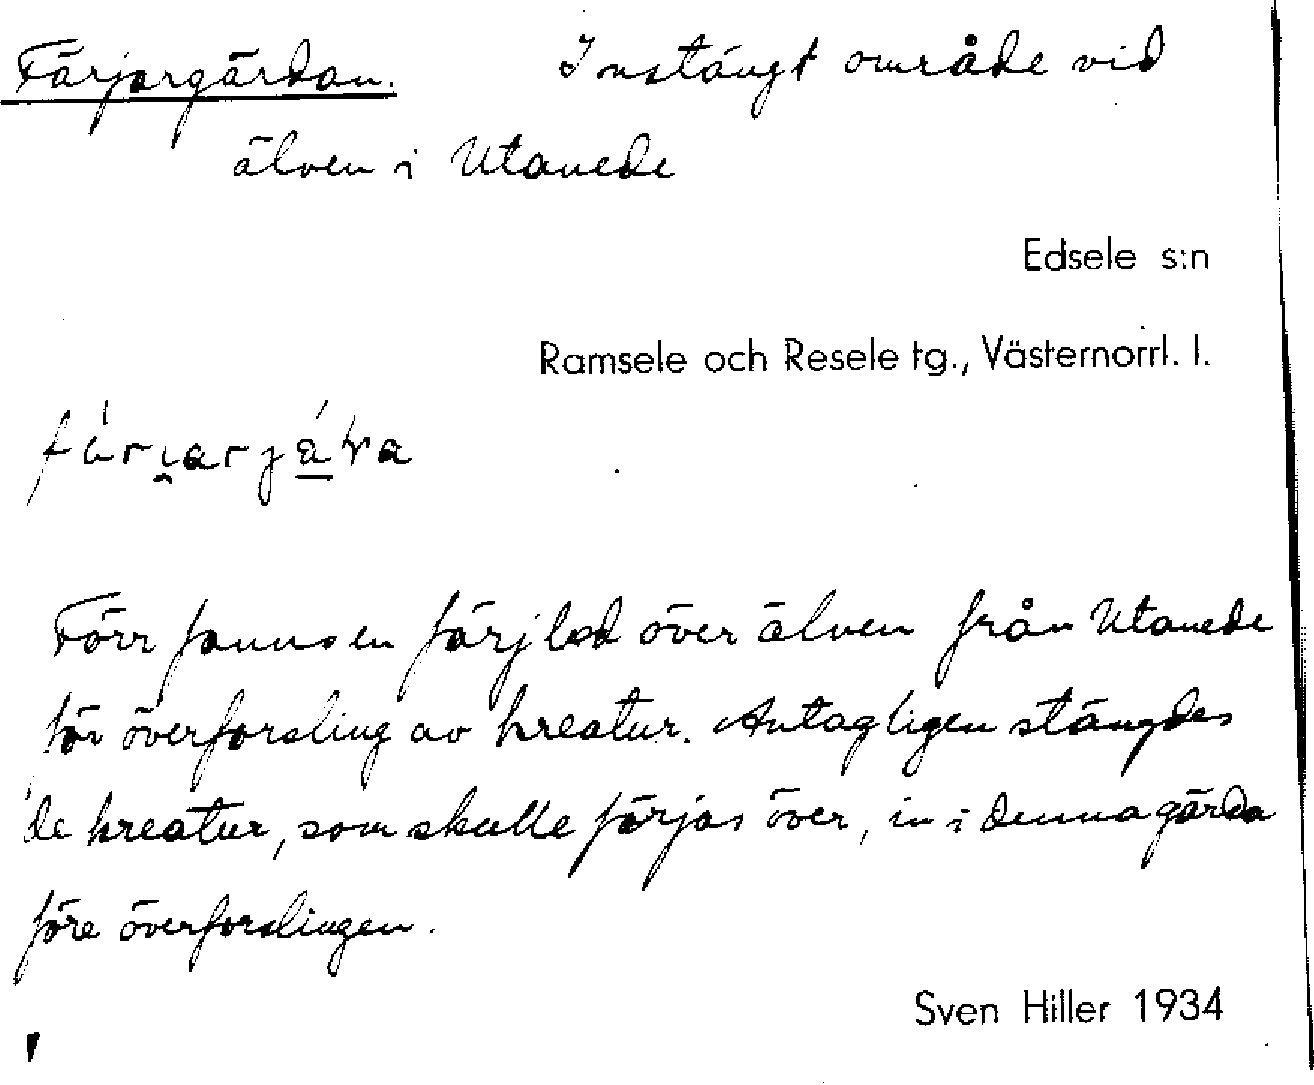 Färjargärdan. Instängt område vid
älven i Utanede
Edsele s:n
Ramsele och Resele tg., Västernorrl. l.
Förr fanns en färjled över älven från Utanede
för överforsling av kreatur. Antagligen stängdes
de kreatur, som skulle färjas över, in i denna gärda
före överforslingen.
Sven Hiller 1934